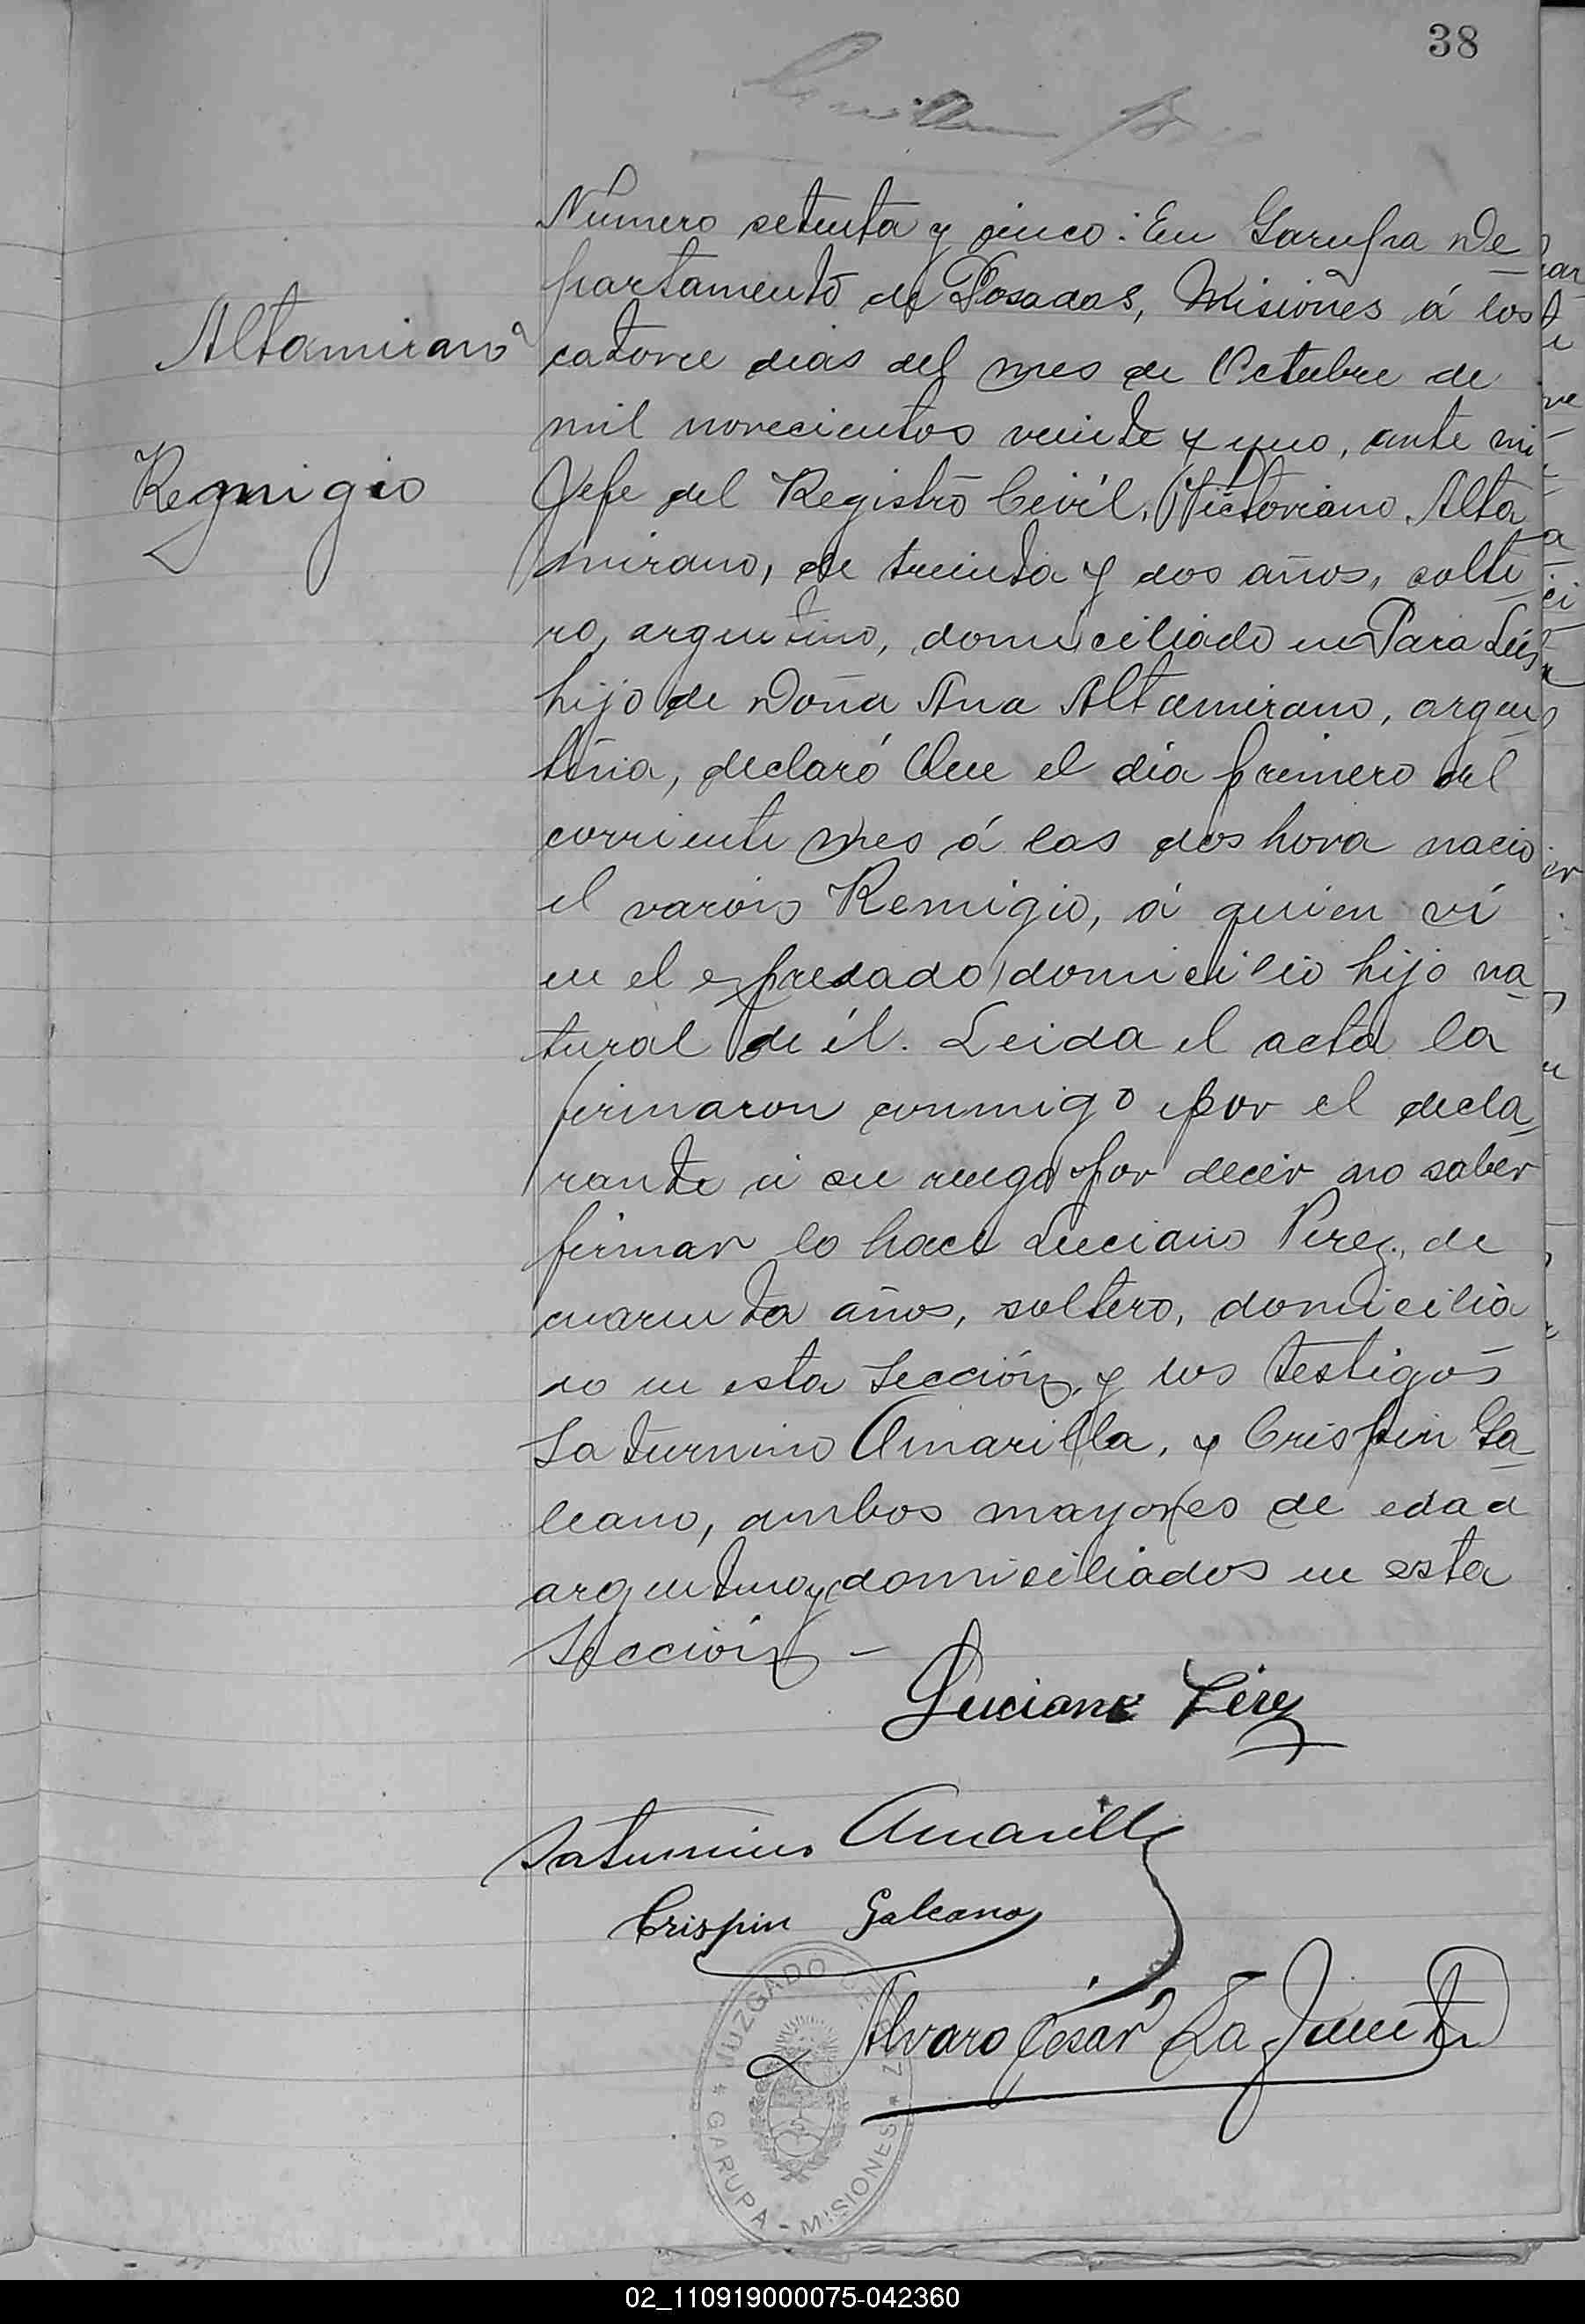 38
Altamirano
Remigio
Número setenta y cinco: En Garupa De
partamento de Posadas, Misiones á los
catorce dias del mes de Octubre de
mil novecientos veinte y uno, ante mi
Jefe del Registro Civil, Victoriano Alta
mirano, de treinta y dos años, solte
ro, argentino, domiciliado en
hijo de Doña Ana Altamirano, argen
tina, declaró Que el día primero del
corriente mes á las dos hora nacio
el varon Remigio, á quien ví
en el expresado domicilio hijo na
tural de él. Leida el acta la
firmaron conmigo por el decla
rante á su ruego por decir no saber
firmar lo hace Luciano Perez, de
cuarenta años, soltero, domicilia
do en esta Sección, y los testigos
Saturnino Amarilla, y Crispin Ga
leano, ambos mayores de edad
argentinos, domiciliados en esta
Sección –
Luciano Pérez
Saturnino Amarilla
Crispin Galeano
Alvaro César La Fuente
JUZGADO DE PAZ * GARUPA - MISIONES *
02_110919000075-042360